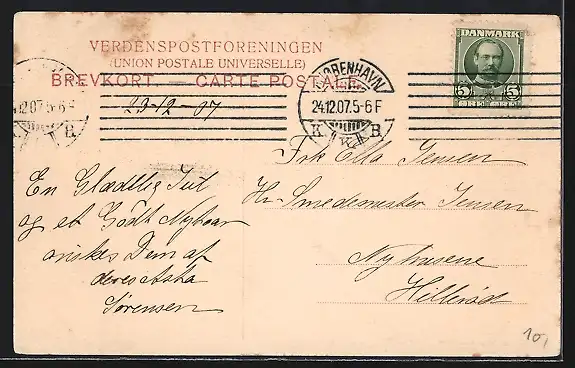 VERDENSPOSTFORENINGEN
(UNION POSTALE UNIVERSELLE)
BREVKORT — CARTE POSTALE
DANMARK
5 5
ØRE ØRE
KJØBENHAVN
24.12.07.5-6F
K B
24.12.07.5-6F
K B
23-12-07
Frk Ella Jensen
Hr Smedemester Jensen
Nyhusene
Hillerød
En Glædelig Jul
og et Godt Nytaar
ønskes Dem af
deres Asta
Sørensen
10,